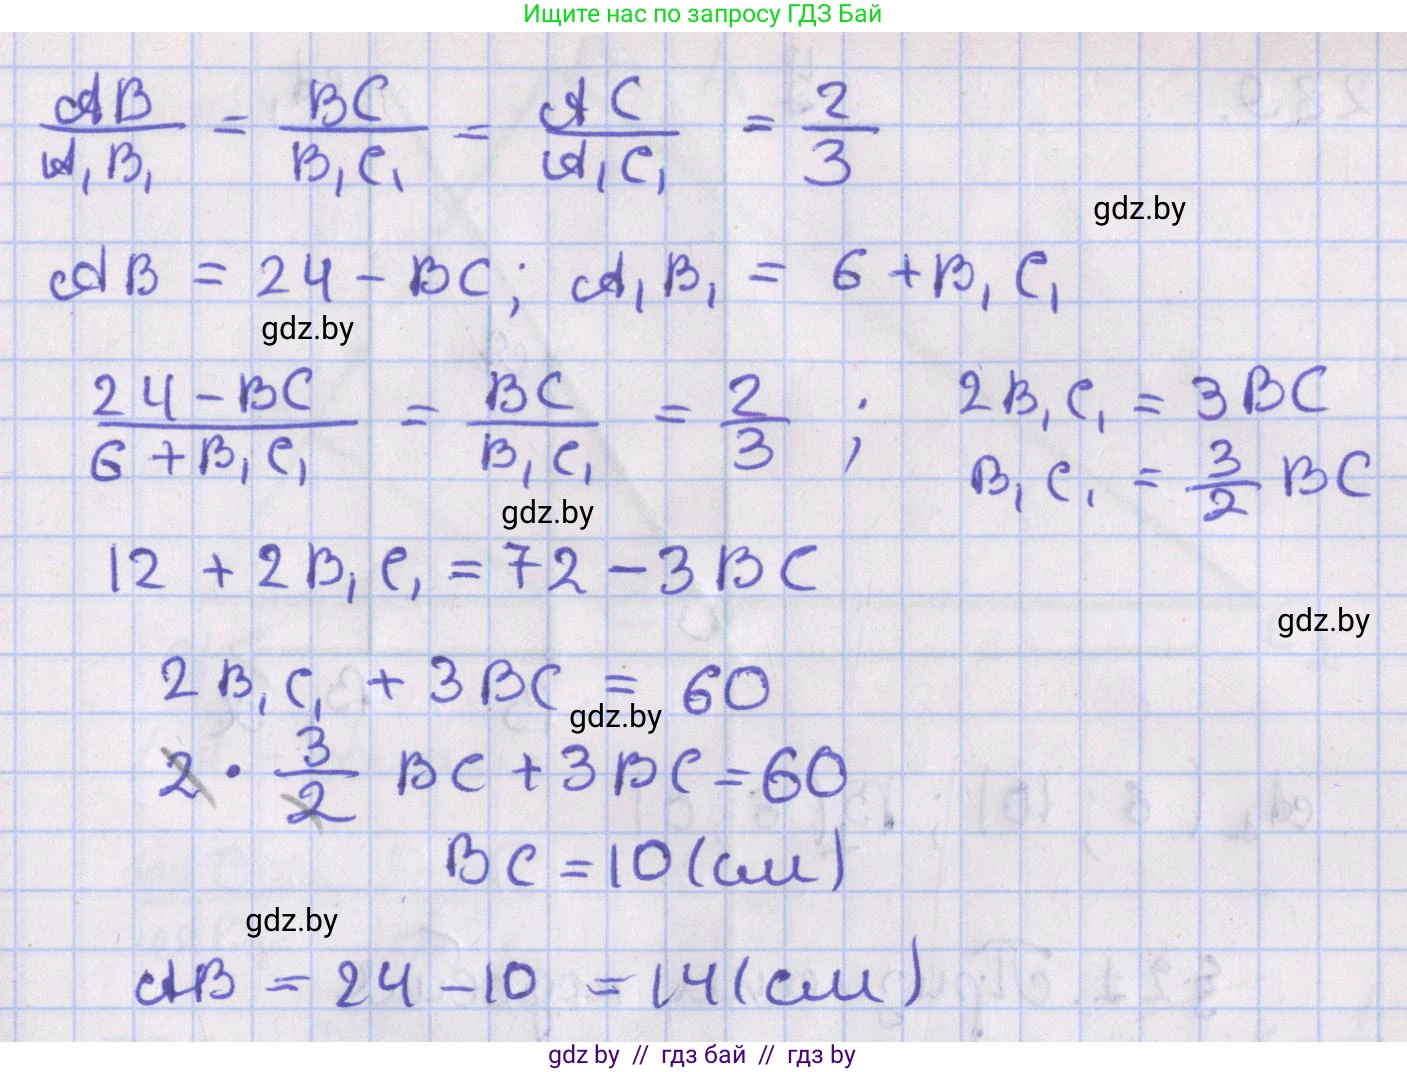 Ищите нас по запросу ГДЗ Бай
AB/A₁B₁ = BC/B₁C₁ = AC/A₁C₁ = 2/3
gdz.by
AB = 24 - BC; A₁B₁ = 6 + B₁C₁
gdz.by
24 - BC/6 + B₁C₁ = BC/B₁C₁ = 2/3 ; 2B₁C₁ = 3BC
B₁C₁ = 3/2 BC
gdz.by
12 + 2B₁C₁ = 72 - 3BC
gdz.by
2B₁C₁ + 3BC = 60
gdz.by
2 · 3/2 BC + 3BC = 60
BC = 10 (см)
gdz.by
AB = 24 - 10 = 14 (см)
gdz.by // гдз бай // гдз by